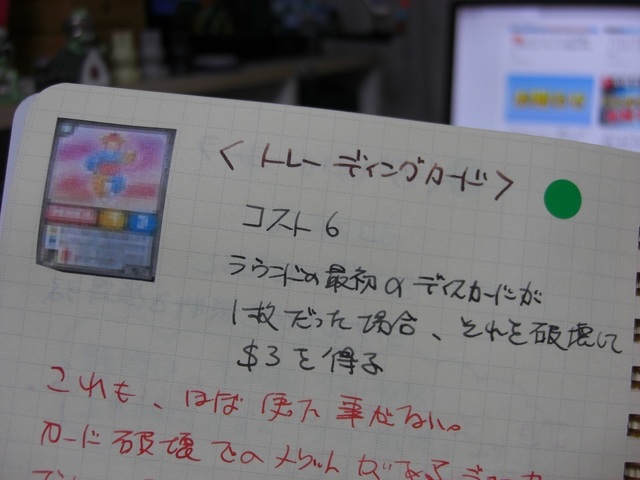 ＜トレーディングカード＞
コスト6
ラウンドの最初のディスカードが
1枚だった場合、それを破壊して
$3を得る
これも、ほぼ使った事がない。
カード破壊でのメリットが